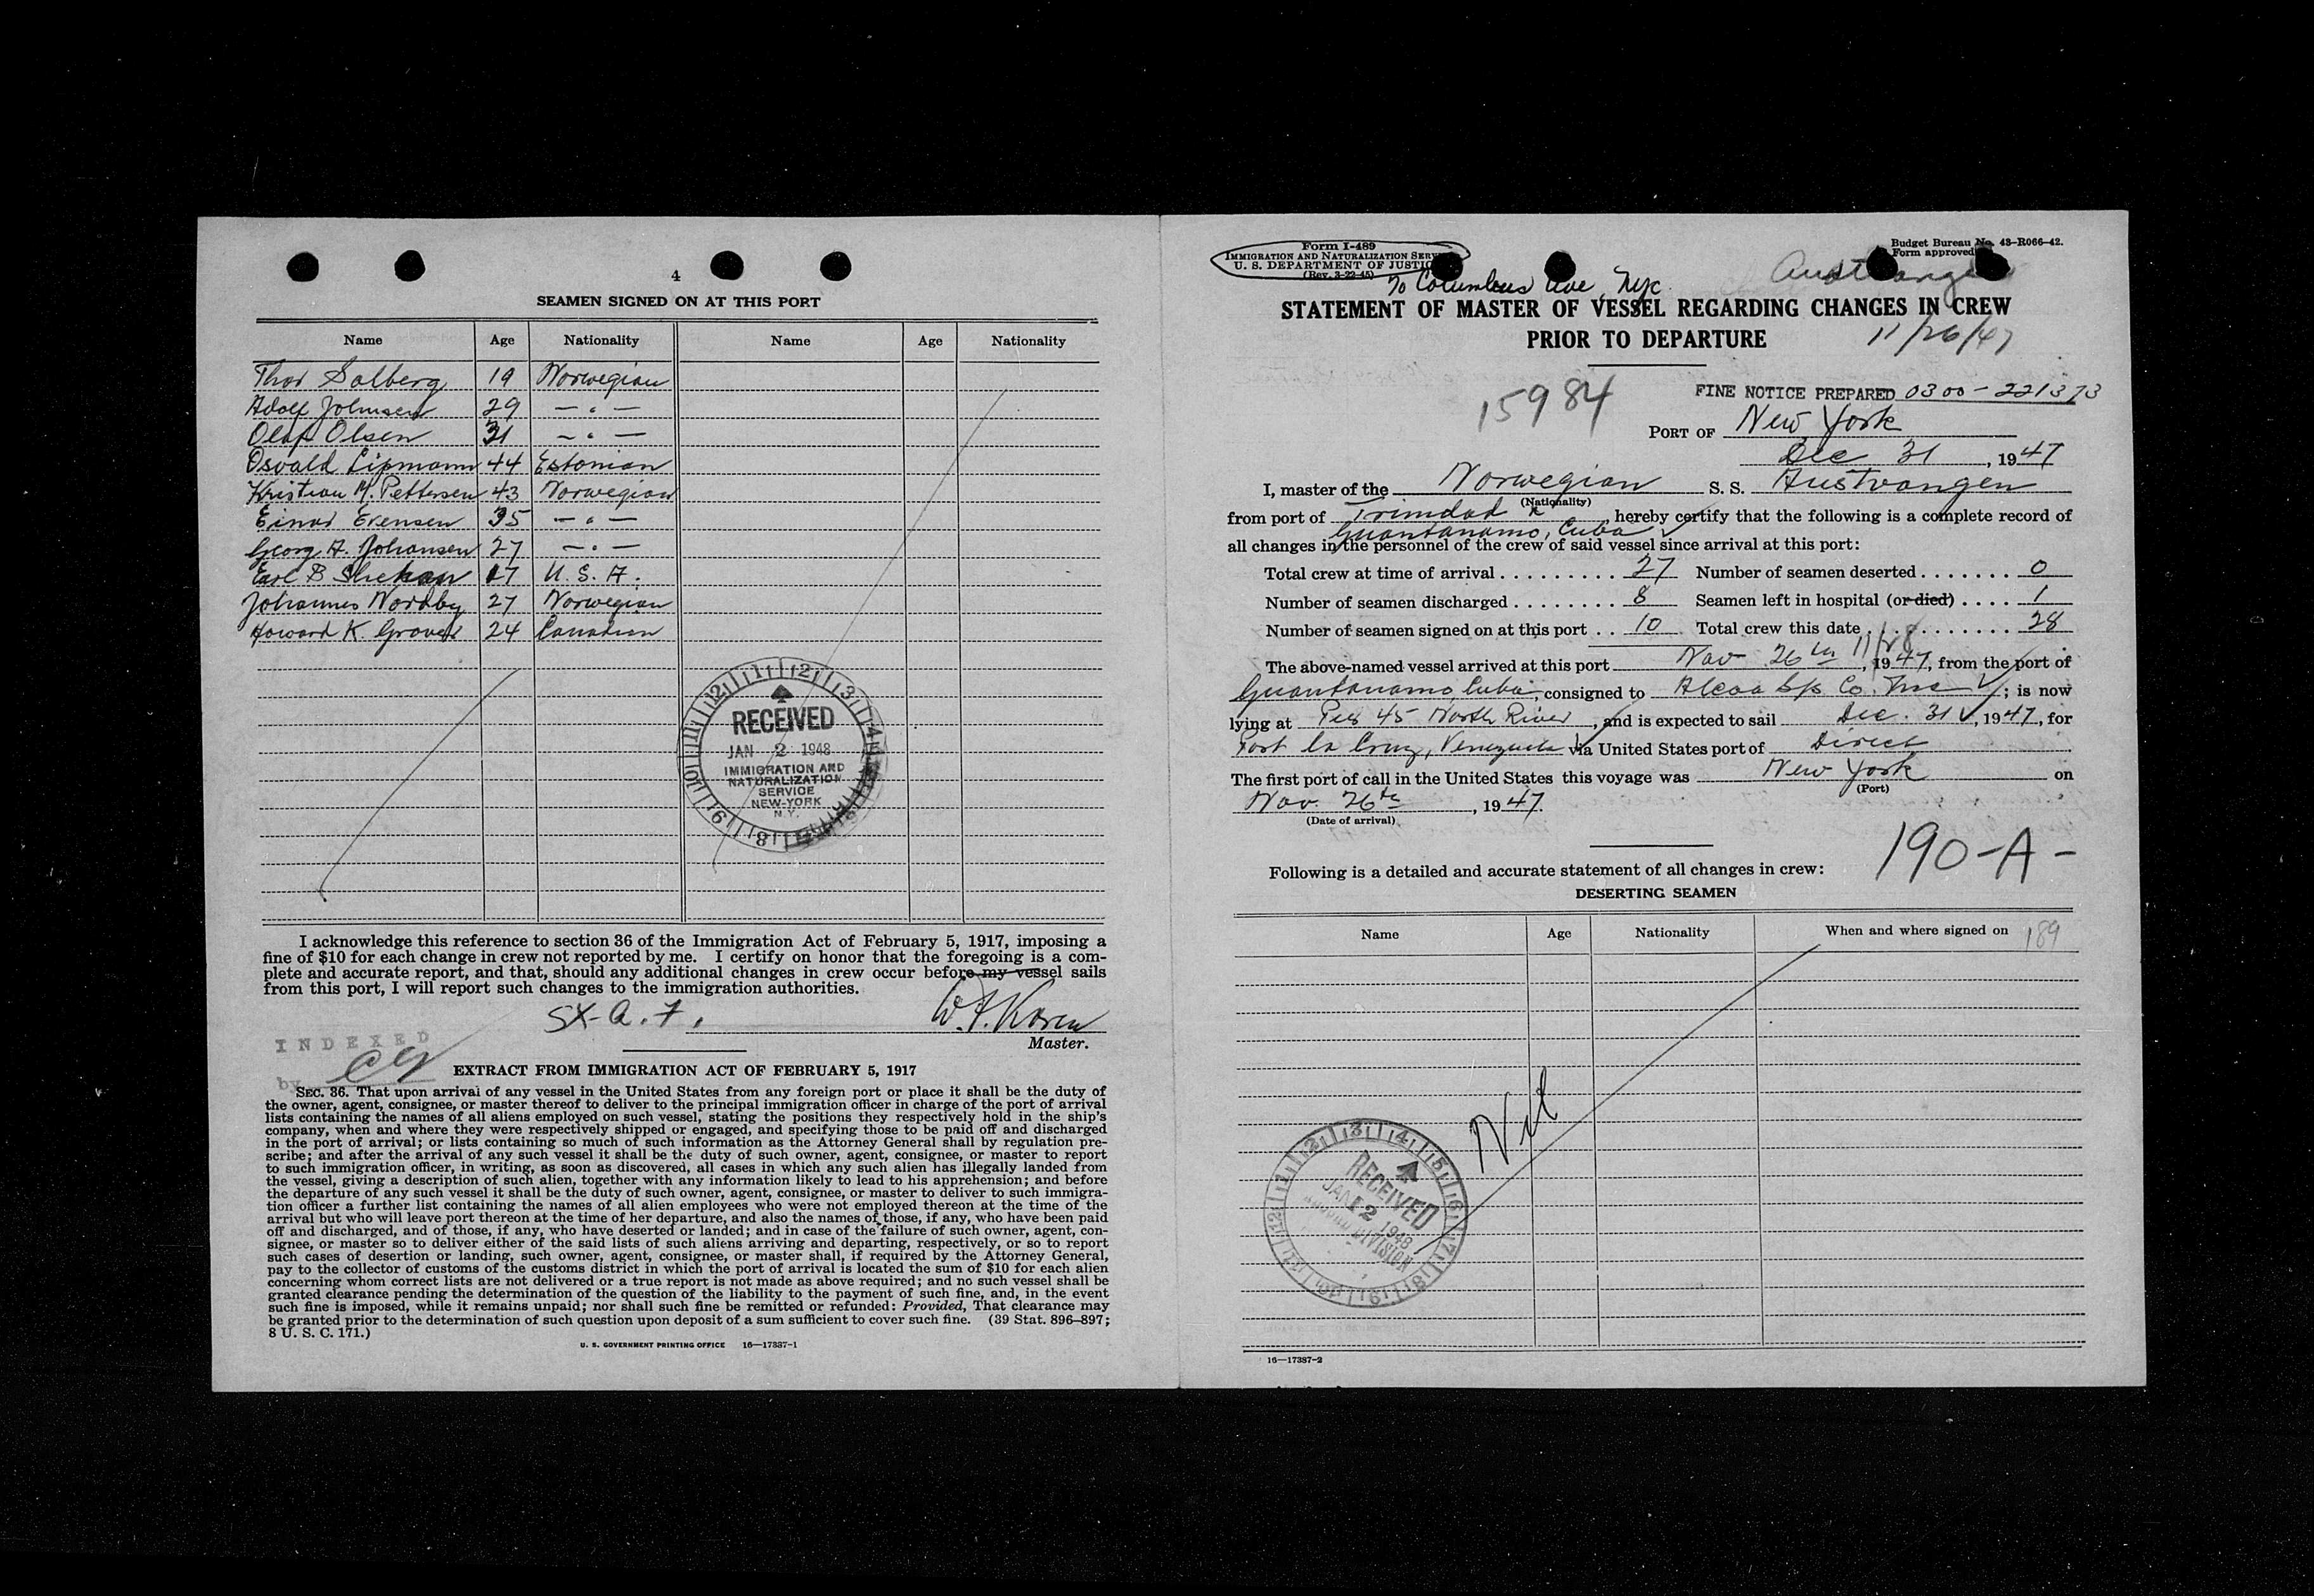 4
SEAMEN SIGNED ON AT THIS PORT
Name Age Nationality Name Age Nationality
Thor Solberg 19 Norwegian
Adolf Johnsen 29 — " —
Olaf Olsen 31 — " —
Osvald Lipmann 44 Estonian
Kristian M. Pettersen 43 Norwegian
Einar Evensen 35 — " —
Georg A. Johansen 27 — " —
Earl B 17 U. S. A.
Johannes Nordby 27 Norwegian
Howard K. Graves 24 Canadian
RECEIVED
JAN 2 1948
IMMIGRATION AND
NATURALIZATION
SERVICE
NEW-YORK
N.Y.
I acknowledge this reference to section 36 of the Immigration Act of February 5, 1917, imposing a
fine of $10 for each change in crew not reported by me. I certify on honor that the foregoing is a com-
plete and accurate report, and that, should any additional changes in crew occur before my vessel sails
from this port, I will report such changes to the immigration authorities.
SX-a.7.
W. F. Koren
Master.
INDEXED
by
EXTRACT FROM IMMIGRATION ACT OF FEBRUARY 5, 1917
SEC. 36. That upon arrival of any vessel in the United States from any foreign port or place it shall be the duty of
the owner, agent, consignee, or master thereof to deliver to the principal immigration officer in charge of the port of arrival
lists containing the names of all aliens employed on such vessel, stating the positions they respectively hold in the ship's
company, when and where they were respectively shipped or engaged, and specifying those to be paid off and discharged
in the port of arrival; or lists containing so much of such information as the Attorney General shall by regulation pre-
scribe; and after the arrival of any such vessel it shall be the duty of such owner, agent, consignee, or master to report
to such immigration officer, in writing, as soon as discovered, all cases in which any such alien has illegally landed from
the vessel, giving a description of such alien, together with any information likely to lead to his apprehension; and before
the departure of any such vessel it shall be the duty of such owner, agent, consignee, or master to deliver to such immigra-
tion officer a further list containing the names of all alien employees who were not employed thereon at the time of the
arrival but who will leave port thereon at the time of her departure, and also the names of those, if any, who have been paid
off and discharged, and of those, if any, who have deserted or landed; and in case of the failure of such owner, agent, con-
signee, or master so to deliver either of the said lists of such aliens arriving and departing, respectively, or so to report
such cases of desertion or landing, such owner, agent, consignee, or master shall, if required by the Attorney General,
pay to the collector of customs of the customs district in which the port of arrival is located the sum of $10 for each alien
concerning whom correct lists are not delivered or a true report is not made as above required; and no such vessel shall be
granted clearance pending the determination of the question of the liability to the payment of such fine, and, in the event
such fine is imposed, while it remains unpaid; nor shall such fine be remitted or refunded: Provided, That clearance may
be granted prior to the determination of such question upon deposit of a sum sufficient to cover such fine. (39 Stat. 896–897;
8 U. S. C. 171.)
U. S. GOVERNMENT PRINTING OFFICE 16—17387-1
Form I-489
IMMIGRATION AND NATURALIZATION SERV
U. S. DEPARTMENT OF JUSTIC
(Rev. 3-22-45)
Budget Bureau No. 43-R066-42.
Form approved
70 Columbus Ave, Nyc
STATEMENT OF MASTER OF VESSEL REGARDING CHANGES IN CREW
PRIOR TO DEPARTURE
11/26/47
15984
FINE NOTICE PREPARED 0300-221373
PORT OF New York
Dec 31, 1947
I, master of the Norwegian S. S. Austvangen
(Nationality)
from port of Trinidad & Guantanamo, Cuba hereby certify that the following is a complete record of
all changes in the personnel of the crew of said vessel since arrival at this port:
Total crew at time of arrival . . . . . . . . . . 27 Number of seamen deserted . . . . . . . 0
Number of seamen discharged . . . . . . . . 8 Seamen left in hospital (or died) . . . . 1
Number of seamen signed on at this port . . 10 Total crew this date . . . . . . . . . . 28
The above-named vessel arrived at this port Nov 26th, 1947, from the port of
Guantanamo, Cuba, consigned to Alcoa S/s Co. Inc; is now
lying at Pier 45 North River, and is expected to sail Dec. 31, 1947, for
Port La Cruz, Venezuela via United States port of Direct
The first port of call in the United States this voyage was New York on
(Port)
Nov. 26th, 1947.
(Date of arrival)
190-A-
Following is a detailed and accurate statement of all changes in crew:
DESERTING SEAMEN
Name Age Nationality When and where signed on 189
Nil
RECEIVED
JAN 2 1948
DIVISION
16—17387-2